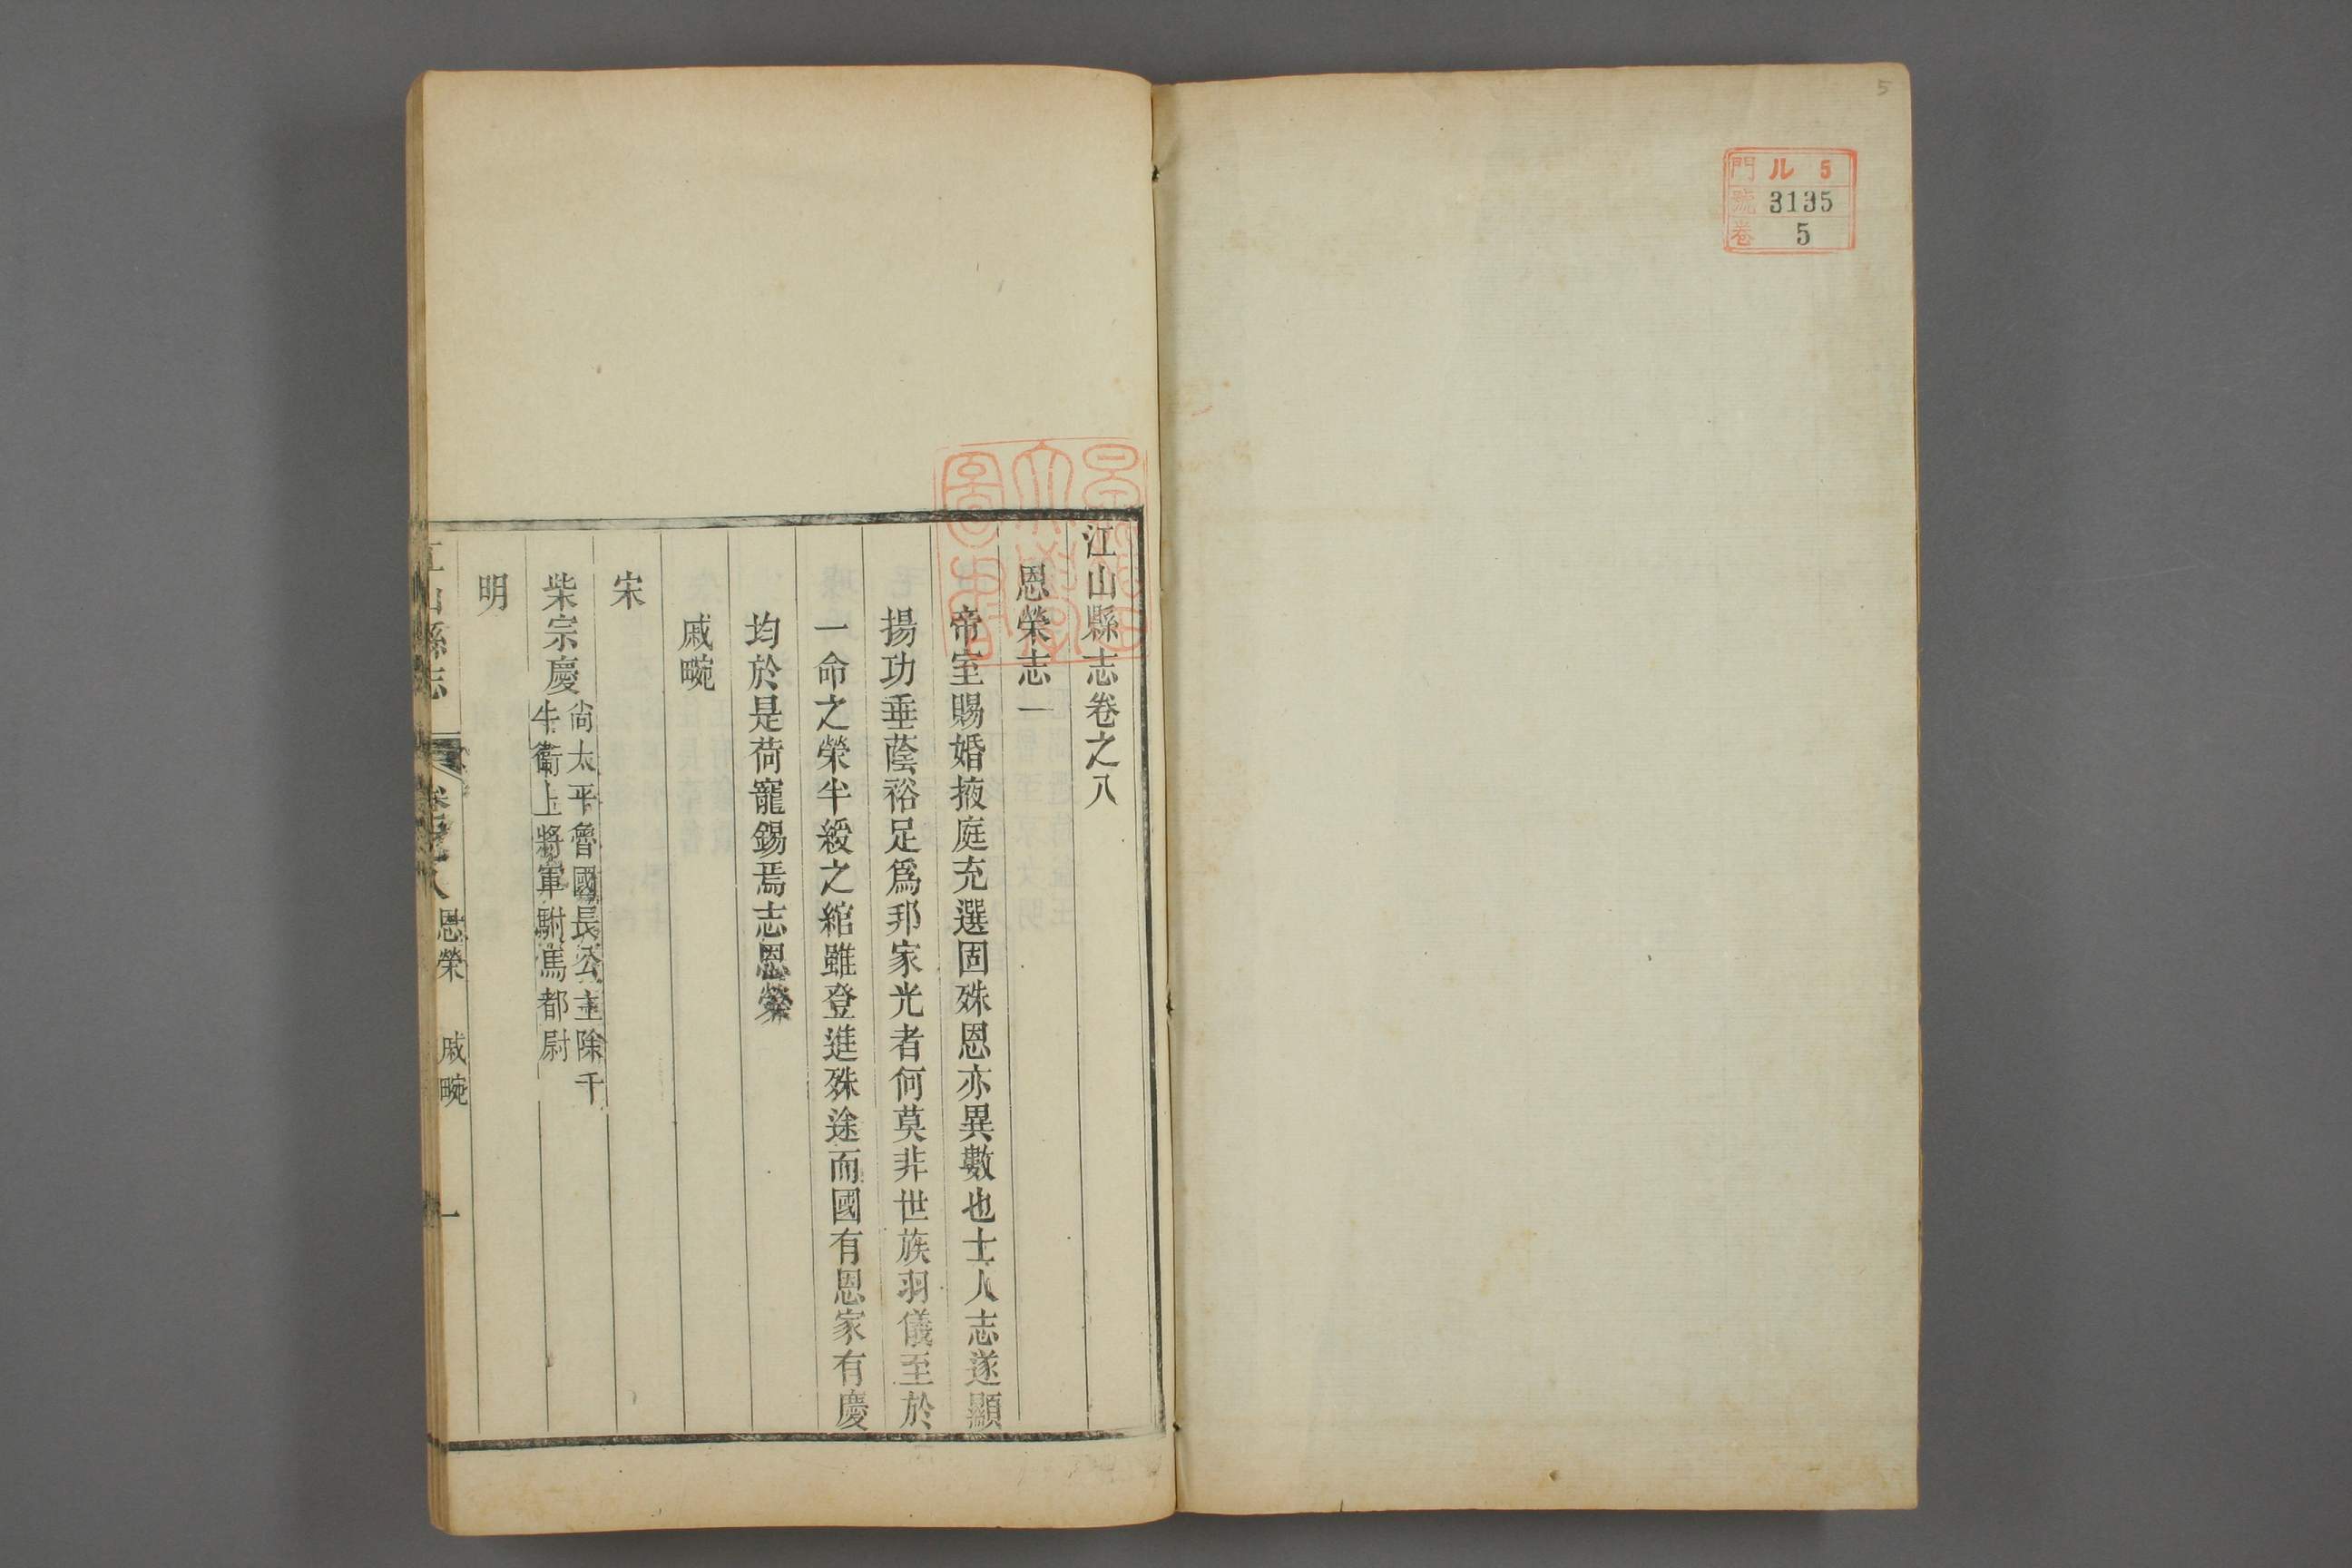 5
門 ル 5
號 3135
卷 5
江山縣志卷之八
恩榮志一
帝室賜婚掖庭充選固殊恩亦異數也士人志遂顯
揚功垂蔭裕足爲邦家光者何莫非世族羽儀至於
一命之榮半綬之綰雖登進殊途而國有恩家有慶
均於是荷寵錫焉志恩榮
戚畹
宋
柴宗慶
尚太平魯國長公主除千
牛衛上將軍駙馬都尉
明
江山縣志 卷之八 恩榮 戚畹 一